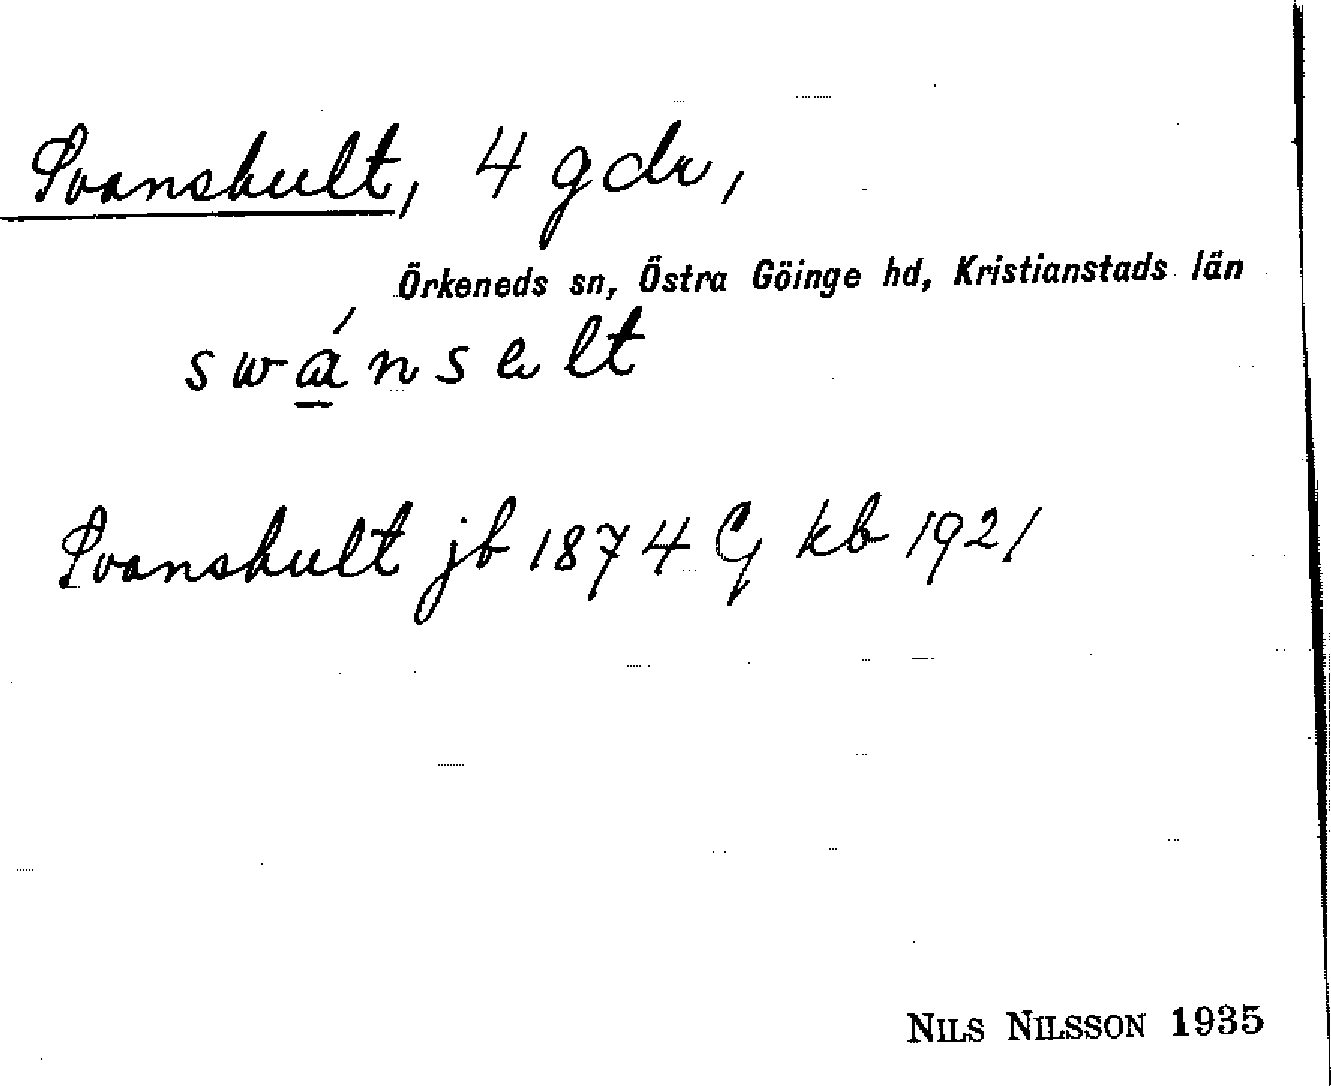 Svanshult, 4 gdr,
Örkeneds sn, Östra Göinge hd, Kristianstads län
swánselt
Svanshult jb 1874 G kb 1921
NILS NILSSON 1935